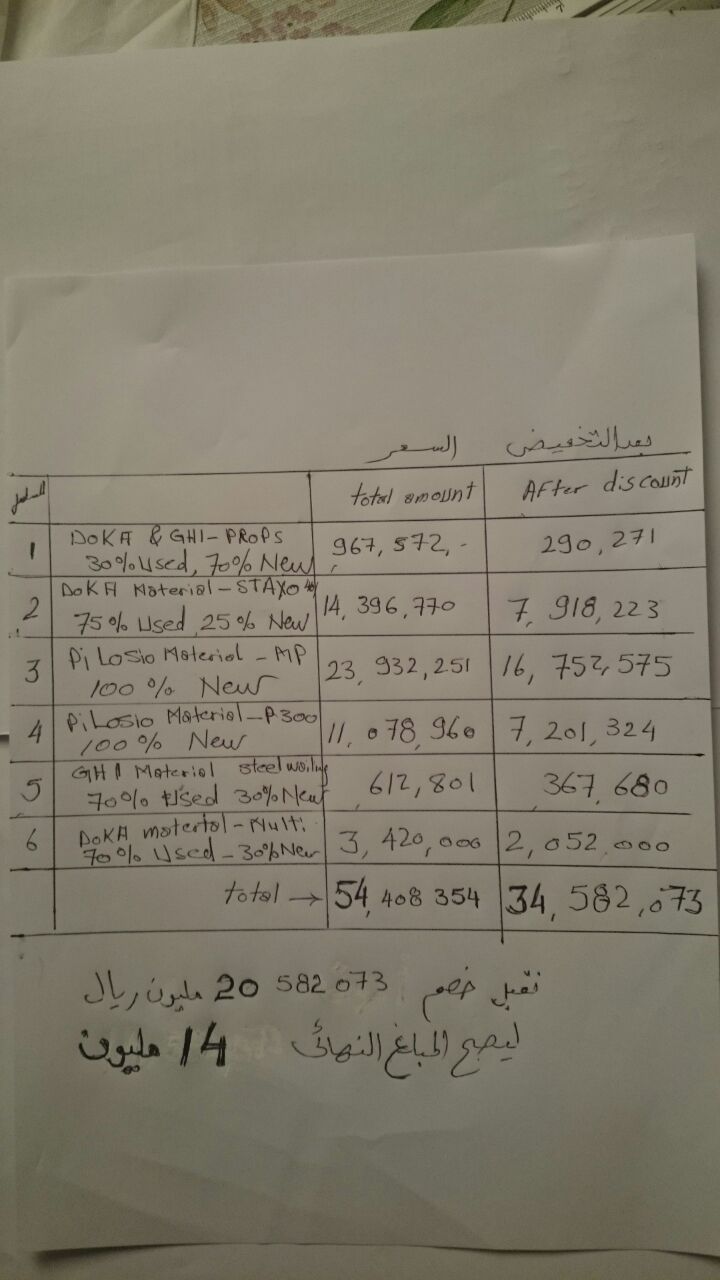 السعر بعد التخفيض
total amount After discount
1 DOKA & GHI-PROPS 967,572,- 290,271
30% Used, 70% New
2 DOKA Material-STAXO 14,396,770 7,918,223
75% Used 25% New
3 Pilosio Material-MP 23,932,251 16,752,575
100% New
4 Pilosio Material-P300 11,078,960 7,201,324
100% New
5 GHI Material steel 612,801 367,680
70% Used 30% New
6 DOKA material-Multi 3,420,000 2,052,000
70% Used-30% New
total → 54,408 354 34,582,073
نقبل خصم 20 582 073 مليون ريال
ليصبح المبلغ النهائى 14 مليون